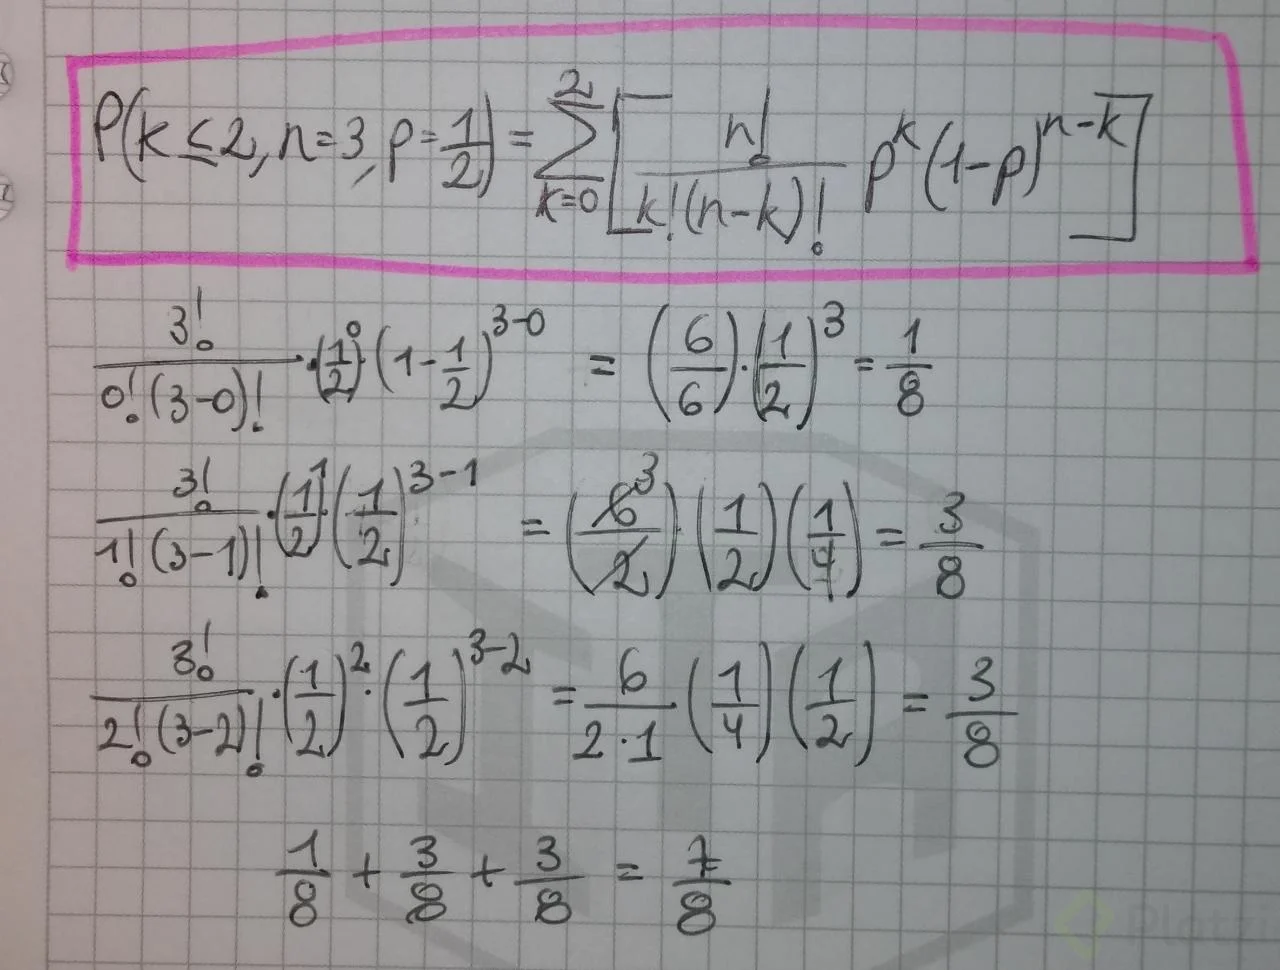 P(k ≤ 2, n = 3, p = 1/2) = ∑_{k=0}^{2} [ n! / k!(n-k)! p^k (1-p)^{n-k} ]
3! / 0!(3-0)! · (1/2)^0 · (1 - 1/2)^{3-0} = (6/6) · (1/2)^3 = 1/8
3! / 1!(3-1)! · (1/2)^1 · (1/2)^{3-1} = (6/2)^3 · (1/2)(1/4) = 3/8
3! / 2!(3-2)! · (1/2)^2 · (1/2)^{3-2} = 6 / 2·1 · (1/4)(1/2) = 3/8
1/8 + 3/8 + 3/8 = 7/8
Platzi